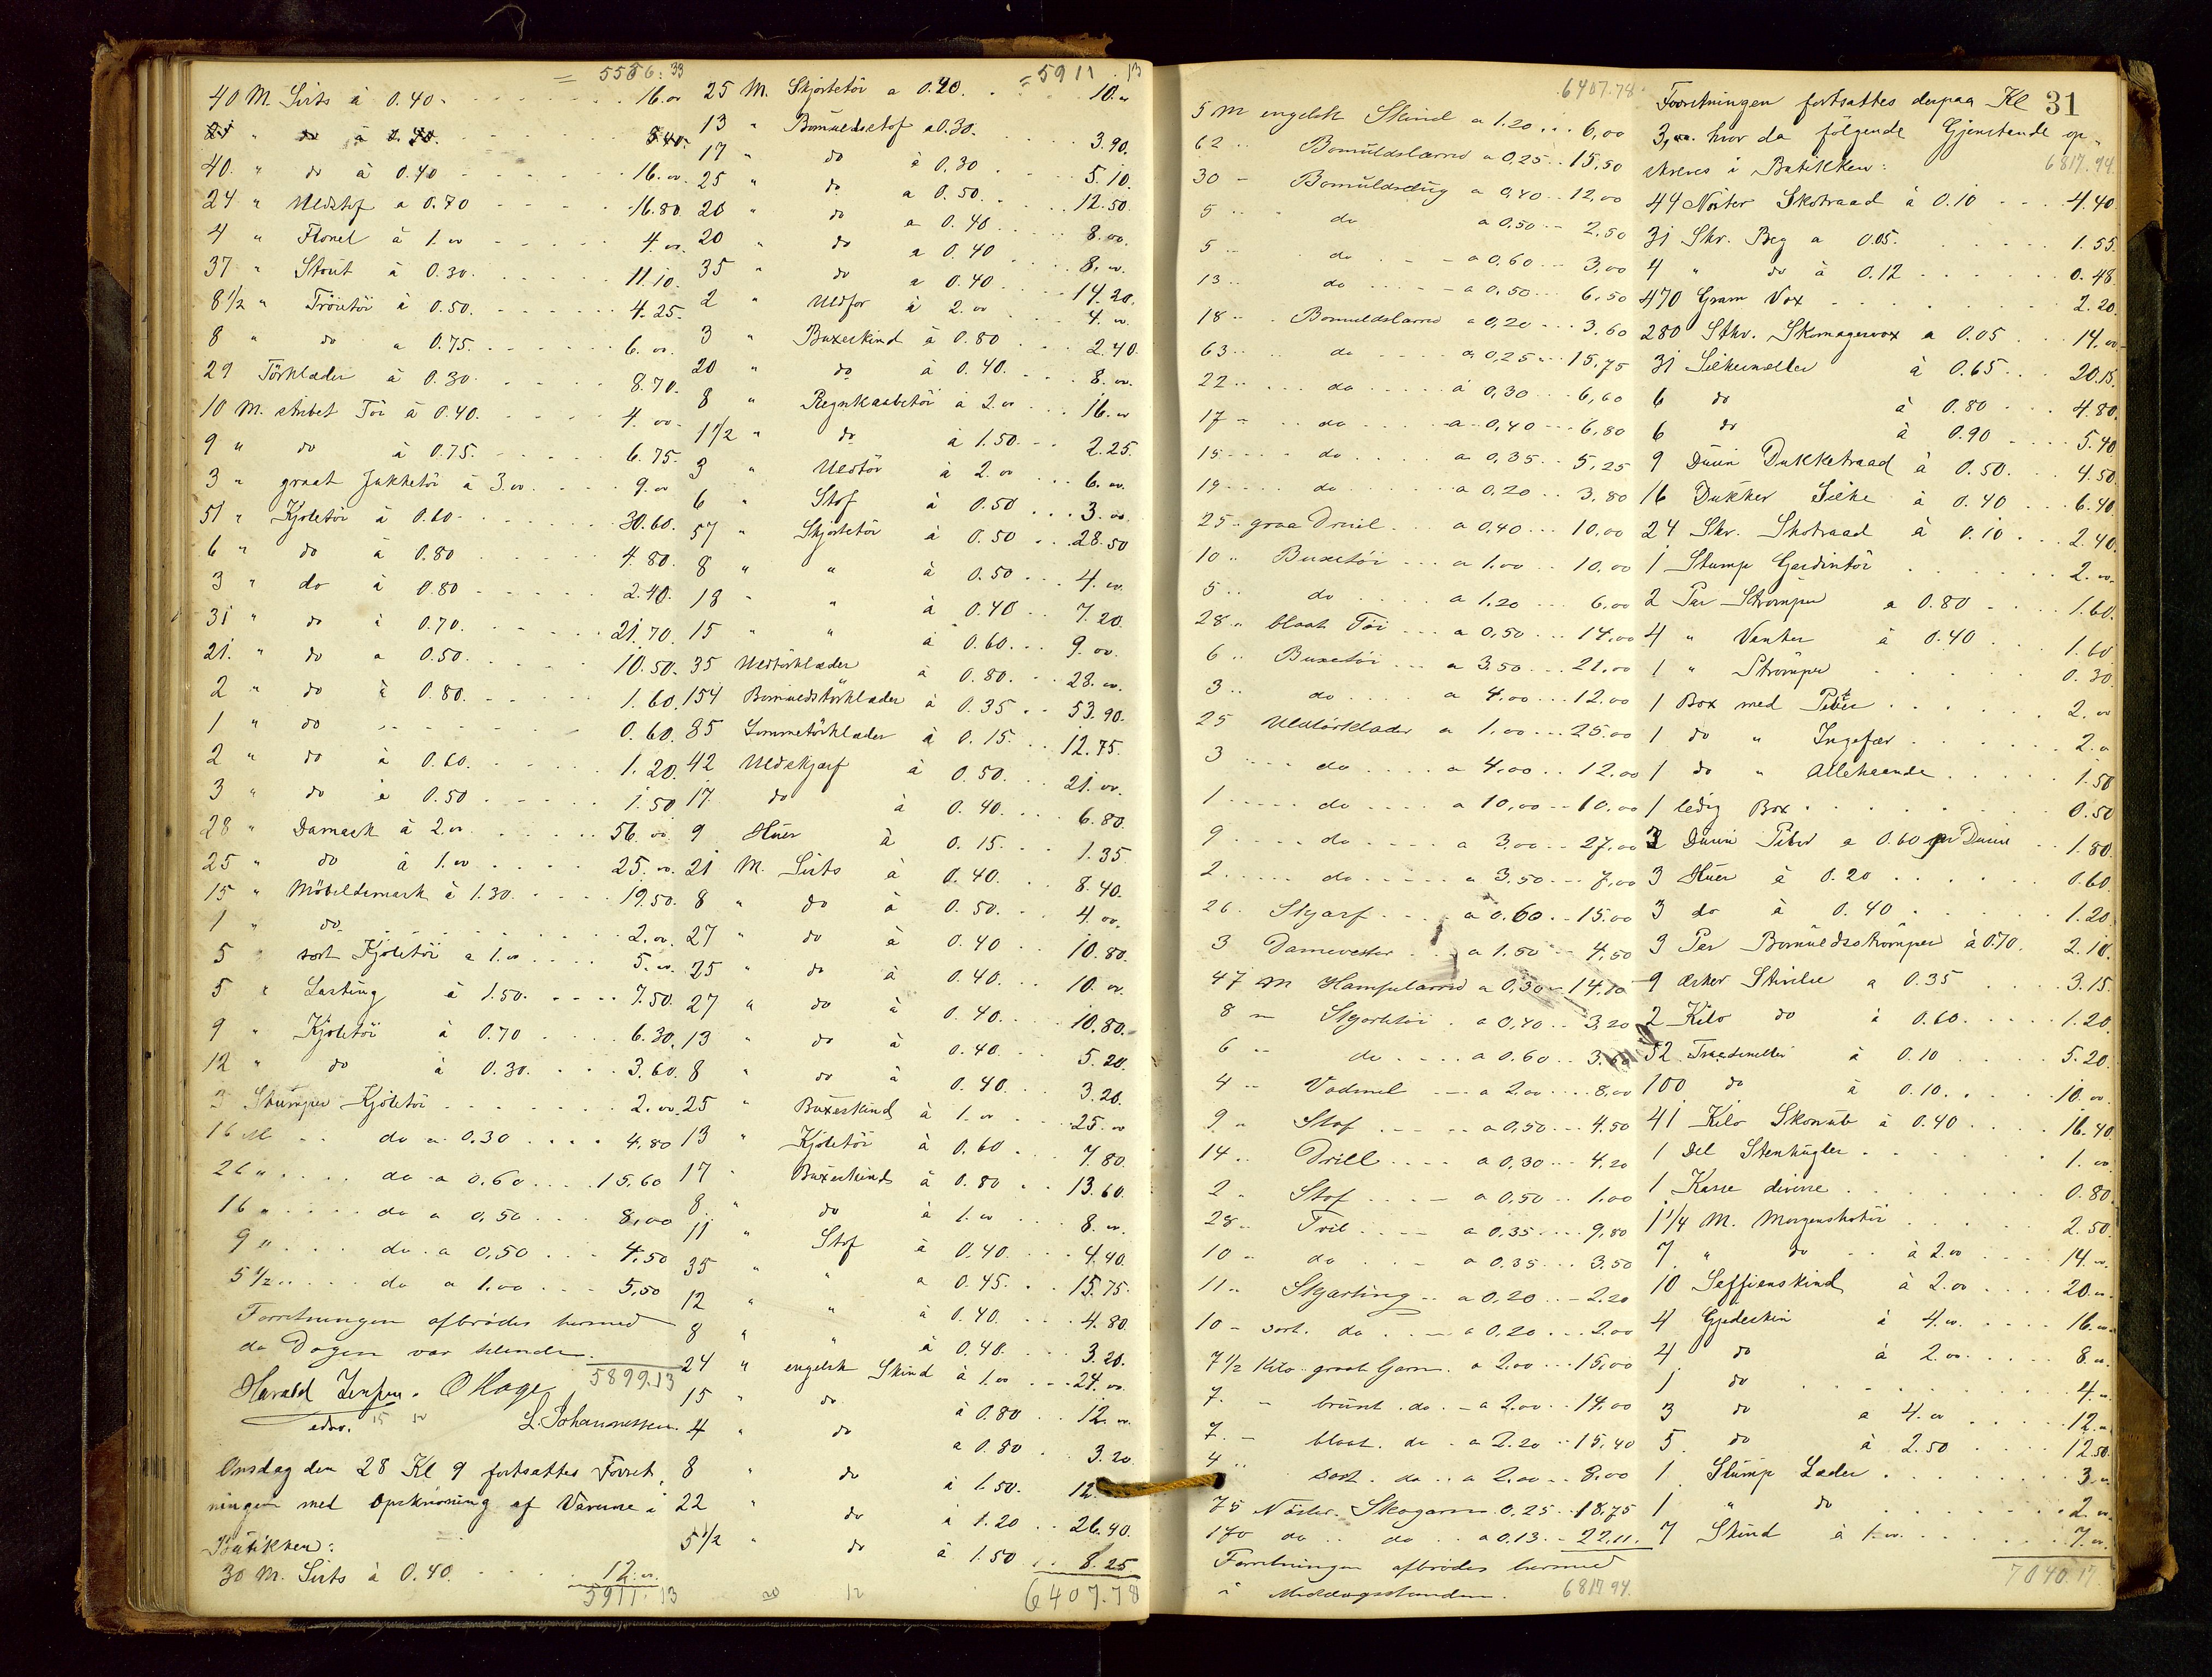 = 5556.33
40 M. Sirts à 0.40 . . . 16.00
21 " do à 0.40. 8.40.
40. " do à 0.40 . . . 16.00.
24 " Uldstof a 0.70 . . . 16.80.
4 " Flonel à 1.00 . . . 4.00
37 " Stout à 0.30. . . . 11.10.
8 1/2 " Tröietöi à 0.50. . . . 4.25.
8 " do a 0.75. . . . 6.00.
29 Törklæder à 0.30. . . . 8.70.
10 M. stribet Töi à 0.40. . . . 4.00.
9 " do à 0.75. . . . 6.75.
3 " graat Jakketöi à 3.00. . . . 9.00
51 " Kjoletöi à 0.60. . . . 30.60.
6 " do à 0.80 . . . 4.80.
3 " do à 0.80 . . . 2.40.
31 " do à 0.70. . . . 21.70.
21. " do a 0.50. . . . 10.50.
2 " do à 0.80. . . . 1.60.
1 " do . . . 0.60.
2 " do à 0.60. . . . 1.20.
3 " do à 0.50. . . . 1.50
28 " Damask à 2.00 . . . 56.00
25 " do à 1.00 . . . 25.00.
15 " Möbeldamask à 1.30. . . . 19.50.
1 " do . . . 2.00.
5 " sort Kjoletöi a 1.00 . . . 5.00.
5 " Lasting à 1.50. . . . 7.50.
9 " Kjoletöi à 0.70 . . . 6.30.
12 " do à 0.30. . . . 3.60.
3 Stumper Kjoletöi . . . 2.00.
16 M . . do a 0.30 . . . 4.80
26 " . . . do a 0.60 . . . 15.60
16 " . . . do a 0,50 . . . 8,00
9 " . . . do a 0,50 . . . 4,50
5 1/2 " . . . do a 1.00 . . . 5,50
Forretningen afbrödes hermed
da Dagen var tilende.
5899.13
Harald Jensen. O Hage
edsv.
L. Johannessen.
Onsdag den 28 Kl 9 fortsattes Forret,
ningen med Opskrivning af Varerne i
Butikken:
30 M. Sirts à 0.40. . . . 12.00.
5911.13
= 5911.13
25 M. Skjortetöi a 0.40. . . . 10.00
13 " Bomuldsstof a 0.30. . . . 3.90.
17 " do à 0.30 . . . 5.10.
25 " do a 0.50. . . . 12.50.
20 " do a 0.40 . . . 8.00.
20 " do a 0.40 . . . 8.00.
35 " do a 0.40. . . . 14.20.
2 " Uldfor à 2.00 . . . 4.00.
3 " Buxeskind à 0.80 . . . 2.40.
20 " do à 0.40. . . . 8.00.
8 " Regnkaabetöi à 2.00 . . . 16.00
1 1/2 " do à 1.50. . . . 2.25.
3 " Uldtöi à 2.00 . . . 6.00.
6 " Stof à 0.50 . . . 3.00.
57 " Skjortetöi à 0.50 . . . 28.50
8 " " à 0.50 . . . 4.00.
18 " " à 0.40 . . . 7.20.
15 " " à 0.60. . . . 9.00.
35 Uldtörklæder à 0.80. . . . 28.00.
154 Bomuldstörklæder à 0.35 . . . 53.90.
85 Lommetörklæder à 0.15. . . . 12.75.
42 Uldskjærf à 0.50. . . . 21.00.
17 do à 0.40. . . . 6.80.
9 Huer à 0.15. . . . 1.35
21 M. Sirts à 0.40. . . . 8.40.
8 " do à 0.50. . . . 4.00.
27 " do à 0.40 . . . 10.80.
25 " do à 0.40. . . . 10.00.
27 " do à 0.40. . . . 10.80.
13 " do à 0.40. . . . 5.20.
8 " do à 0.40. . . . 3.20.
25 " Buxeskind à 1.00 . . . 25.00
13 " Kjoletöi à 0.60 . . . 7.80.
17 " Buxeskind à 0.80 . . . 13.60.
8. " do à 1.00 . . . 8.00.
11 " Stof à 0.40. . . . 4.40.
35 " " a 0.45. . . . 15.75.
12 " " à 0.40. . . . 4.80.
8 " " à 0.40. . . . 3.20.
24 " engelsk Skind à 1.00 . . . 24.00.
15 " do. à 0.80 . . . 12.00.
4 " do a 0.80 . 3.20.
8 " do à 1.50. . . 12
22 " do à 1.20 . . 26.40.
5 1/2 " do à 1.50 . . . 8.25
6407.78
31
6407.78
5 M engelsk Skind a 1.20 . . . 6,00
62 " Bomuldslærred a 0,25 . . 15,50
30 - Bomuldsdug a 0,40 . . 12,00
5 " do a 0,50 . . 2,50
5 - do . . - a 0,60 . . . 3,00
13 " do . . . a 0,50 . . . 6,50
18 " Bomuldslærred a 0,20 . . . 3,60
63 " do . . . a 0,25 . . . 15,75
22 " . . do . . . a 0,30 . . . 6,60
17 - . . do . . . a 0,40 . . . 6,80
15 . . . do . . . a 0,35 . . . 5,25
19 . . . do . . . a 0,20 . . . 3,80
25 " graa Dreiel . . . a 0,40 . . . 10,00
10 " Buxetöi . . . a 1.00 . . . 10,00
5 " do . . . a 1.20 . . . 6,00
28 " blaat Töi . . . a 0,50 . . . 14,00
6 " Buxetöi . . . a 3,50 . . . 21,00
3 " do . . . a 4,00 . . . 12,00
25 Uldtörklæder a 1,00 . . . 25,00
3 . . . do . . . a 4,00 . . . 12,00
1 . . . do . . . a 10,00 . . 10,00
9 . . . do . . . a 3,00 . . 27,00
2 . . . do . . . a 3,50 . . . 7,00
26 . Skjærf . . . a 0.60 . . 15.00
3 Damevester . . . a 1.50 . . 4,50
47 m Hampelærred a 0,30 . 14,10
8 " Skjortetöi . a 0,40 . . 3,20
6 " do . . . a 0.60 . . 3.60
4 - Vadmel . . . a 2,00 . . . 8,00
9 " Stof . . . a 0,50 . . . 4.50
14 " Drill . . . a 0,30 . . . 4.20
2 " Stof . . . a 0,50 . . . 1,00
28 " Tvil . . . a 0,35 . . . 9,80
10 " do . . . a 0.35 . . . 3.50
11 " Skjarting . . a 0,20 . . - 2.20
10 - sort. do . . a 0,20 . . . 2,00
7 1/2 Kilo graat Garn. a 2,00 . . . 15,00
7. - brunt . do . - a 2.00 . . 14,00
7. - blaat . do . a 2.20 . . 15,40
4 " sort . do . . a 2,00 . . . 8,00
75 Nöster. Skogarn 0,25 . . 18,75
170 do . . do . . a 0,13 . . 22,11.
Forretningen afbrödes hermed
i Middagsstunden.
6817 94.
Forretningen fortsattes derpaa Kl
3,00. hvor da fölgende Gjenstande op,
skreves i Butikken:
6817.94.
44 Nöster Skotraad à 0.10 . . . 4.40.
31 Stkr. Beg a 0.05. . . . 1.55.
4 " do à 0.12 . . . 0.48
470 Gram Vox . . . 2.20.
280 Stkr. Skomagervox a 0.05 . . . 14.00
31 Silkesneller à 0.65 . . . 20.15.
6 do à 0.80 . . . 4.80.
6 do à 0.90 . . . 5.40
9 Dusin Dukketraad à 0.50. . . . 4.50.
16 Dukker Silke à 0.40 . . . 6.40.
24 Stkr. Skotraad à 0.10 . . . 2.40.
1 Stump Gardintöi . . . 2.00.
2 Par Strömper a 0.80 . . . 1.60.
4 " Vanter à 0.40 . . . 1.60
1 " Strömper . . . 0.30.
1 Box med Peber . . . 2.00
1 do " Ingefær . . . 2.00
1 do " Allehaande . . . 1.50
1 ledig Box . . . 0.50
3 Dusin Piber a 0.60 pr Dusin . . 1.80.
3 Huer à 0.20 . . . 0.60
3 do à 0.40 . . . 1.20
3 Par Bomuldsströmper à 0.70. 2.10.
9 Æsker Stivelse a 0.35 . . . 3.15.
2 Kilo do à 0.60 . . . 1.20.
52 Traadsneller à 0.10 . . . 5.20
100 do à 0.10. . . . 10.00.
41 Kilo Skonub à 0.40 . . . 16.40
1 Del Stenkugler . . . 1.00.
1 Kasse diverse . . . 0.80.
1 1/4 M. Morgenskotöi . . . 2.50.
7. " do . . à 2.00 . . . 14.00.
10 Seffienskind à 2.00 . . . 20.00.
4 Gjedeskin à 4.00. . . . 16.00.
4 do à 2.00. . . . 8.00
1 do . . . 4.00
3 do a 4.00 . . . 12.00
5 do à 2.50 . . . 12.50.
1 Stump Læder . . . 3.00
1 " do . . . 2.00.
7 Skind à 1.00. . . . 7.00.
7040.17.